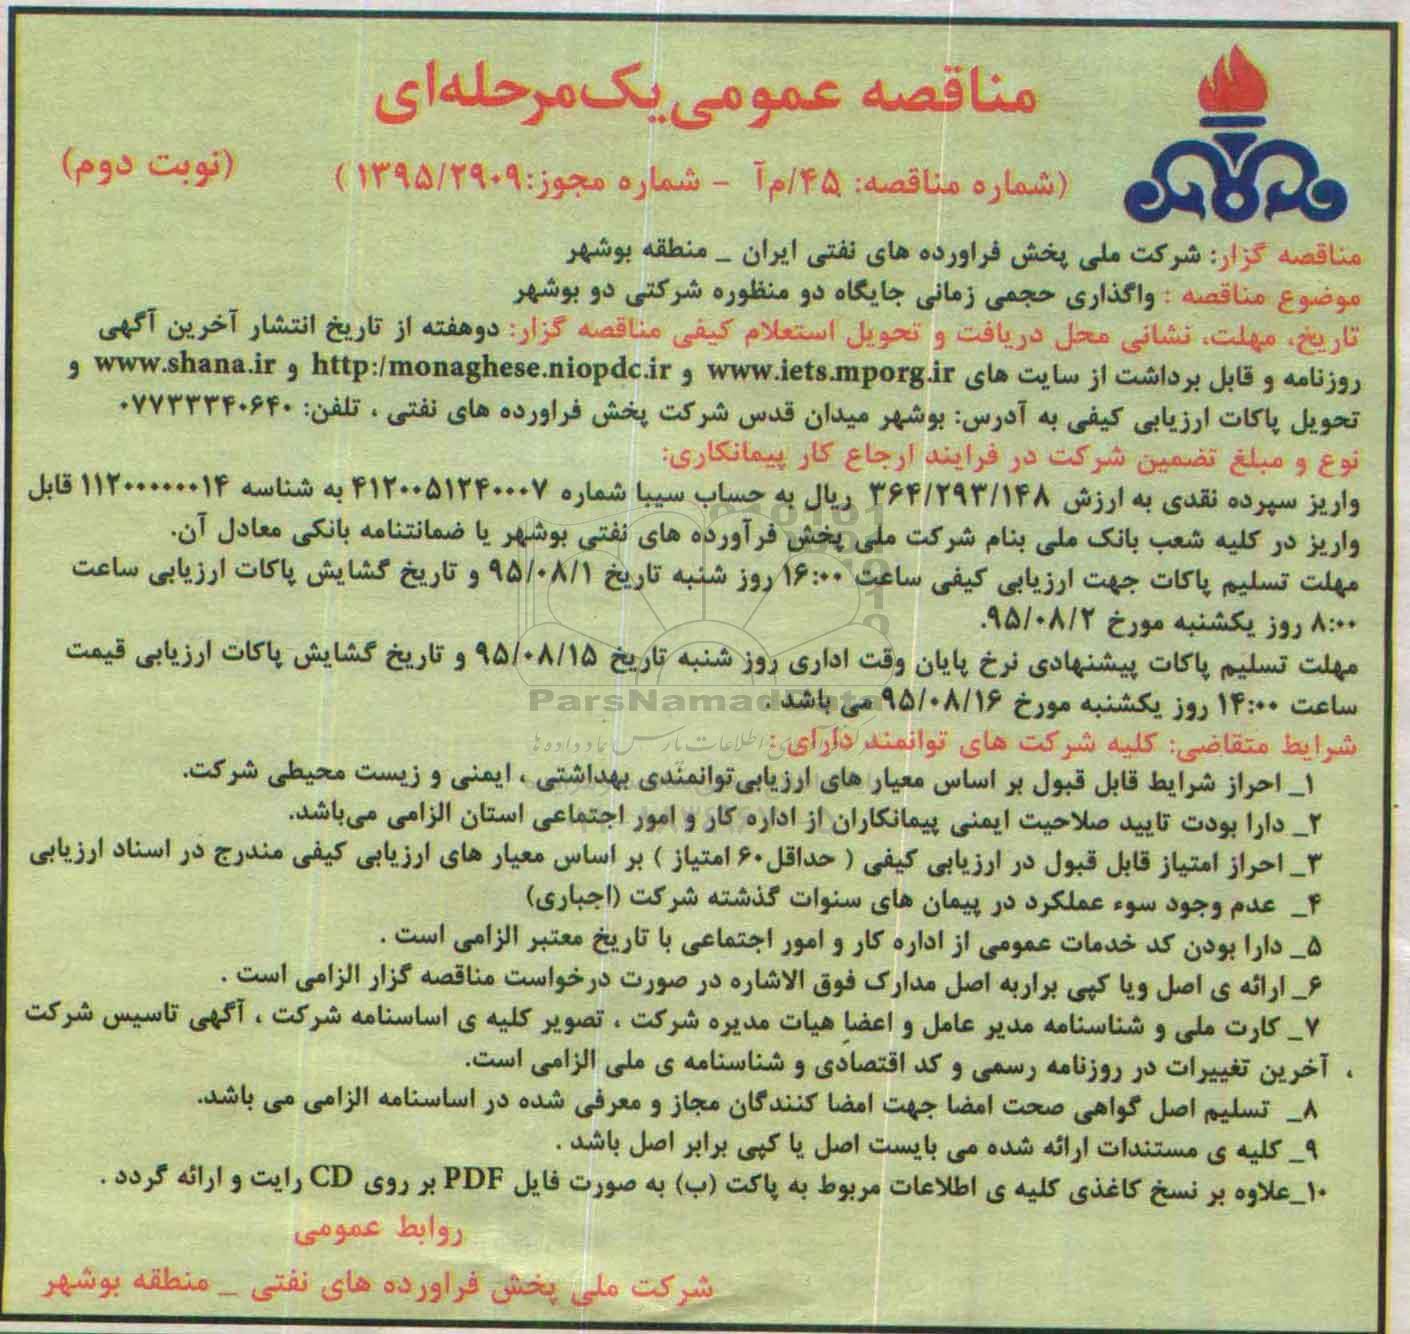 مناقصه عمومی یک‌مرحله‌ای
(شماره مناقصه: ۴۵/م‌آ - شماره مجوز:۱۳۹۵/۲۹۰۹)
(نوبت دوم)
مناقصه گزار: شرکت ملی پخش فراورده های نفتی ایران _ منطقه بوشهر
موضوع مناقصه : واگذاری حجمی زمانی جایگاه دو منظوره شرکتی دو بوشهر
تاریخ، مهلت، نشانی محل دریافت و تحویل استعلام کیفی مناقصه گزار: دوهفته از تاریخ انتشار آخرین آگهی
روزنامه و قابل برداشت از سایت های www.iets.mporg.ir و http:/monaghese.niopdc.ir و www.shana.ir و
تحویل پاکات ارزیابی کیفی به آدرس: بوشهر میدان قدس شرکت پخش فراورده های نفتی ، تلفن: ۰۷۷۳۳۳۴۰۶۴۰
نوع و مبلغ تضمین شرکت در فرایند ارجاع کار پیمانکاری:
واریز سپرده نقدی به ارزش ۳۶۴/۲۹۳/۱۴۸ ریال به حساب سیبا شماره ۴۱۲۰۰۵۱۲۴۰۰۰۷ به شناسه ۱۱۲۰۰۰۰۰۰۱۴ قابل
واریز در کلیه شعب بانک ملی بنام شرکت ملی پخش فرآورده های نفتی بوشهر یا ضمانتنامه بانکی معادل آن.
مهلت تسلیم پاکات جهت ارزیابی کیفی ساعت ۱۶:۰۰ روز شنبه تاریخ ۹۵/۰۸/۱ و تاریخ گشایش پاکات ارزیابی ساعت
۸:۰۰ روز یکشنبه مورخ ۹۵/۰۸/۲.
مهلت تسلیم پاکات پیشنهادی نرخ پایان وقت اداری روز شنبه تاریخ ۹۵/۰۸/۱۵ و تاریخ گشایش پاکات ارزیابی قیمت
ساعت ۱۴:۰۰ روز یکشنبه مورخ ۹۵/۰۸/۱۶ می باشد .
ParsNamadData
شرایط متقاضی: کلیه شرکت های توانمند دارای :
۱_ احراز شرایط قابل قبول بر اساس معیار های ارزیابی‌توانمندی بهداشتی ، ایمنی و زیست محیطی شرکت.
۲_ دارا بودت تایید صلاحیت ایمنی پیمانکاران از اداره کار و امور اجتماعی استان الزامی می‌باشد.
۳_ احراز امتیاز قابل قبول در ارزیابی کیفی ( حداقل۶۰ امتیاز ) بر اساس معیار های ارزیابی کیفی مندرج در اسناد ارزیابی
۴_ عدم وجود سوء عملکرد در پیمان های سنوات گذشته شرکت (اجباری)
۵_ دارا بودن کد خدمات عمومی از اداره کار و امور اجتماعی با تاریخ معتبر الزامی است .
۶_ ارائه ی اصل ویا کپی برابربه اصل مدارک فوق الاشاره در صورت درخواست مناقصه گزار الزامی است .
۷_ کارت ملی و شناسنامه مدیر عامل و اعضا هیات مدیره شرکت ، تصویر کلیه ی اساسنامه شرکت ، آگهی تاسیس شرکت
، آخرین تغییرات در روزنامه رسمی و کد اقتصادی و شناسنامه ی ملی الزامی است.
۸_ تسلیم اصل گواهی صحت امضا جهت امضا کنندگان مجاز و معرفی شده در اساسنامه الزامی می باشد.
۹_ کلیه ی مستندات ارائه شده می بایست اصل یا کپی برابر اصل باشد .
۱۰_علاوه بر نسخ کاغذی کلیه ی اطلاعات مربوط به پاکت (ب) به صورت فایل PDF بر روی CD رایت و ارائه گردد .
روابط عمومی
شرکت ملی پخش فراورده های نفتی _ منطقه بوشهر